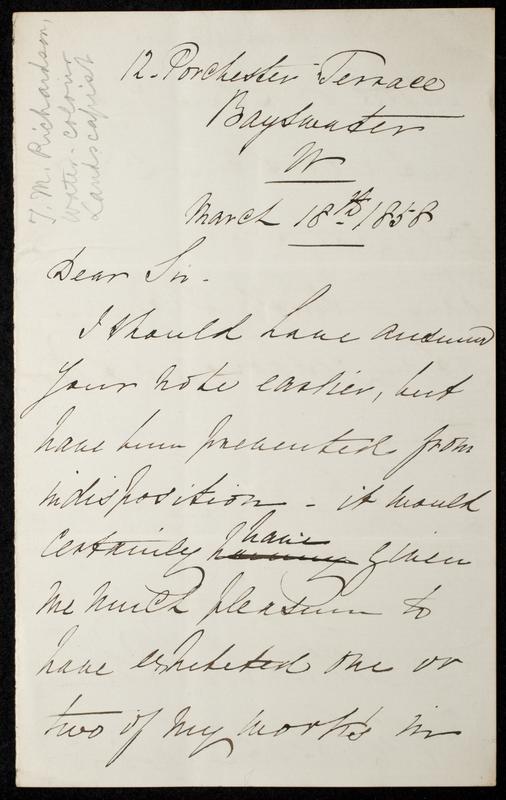 T. M. Richardson,
Water-colour
Landscapist
12 - Porchester Terrace
Bayswater
W
March 18th 1858
Dear Sir -
I should have answered
your note earlier, but
have been prevented from
indisposition - it would
certainly have given
me much pleasure to
have exhibited one or
two of my works in